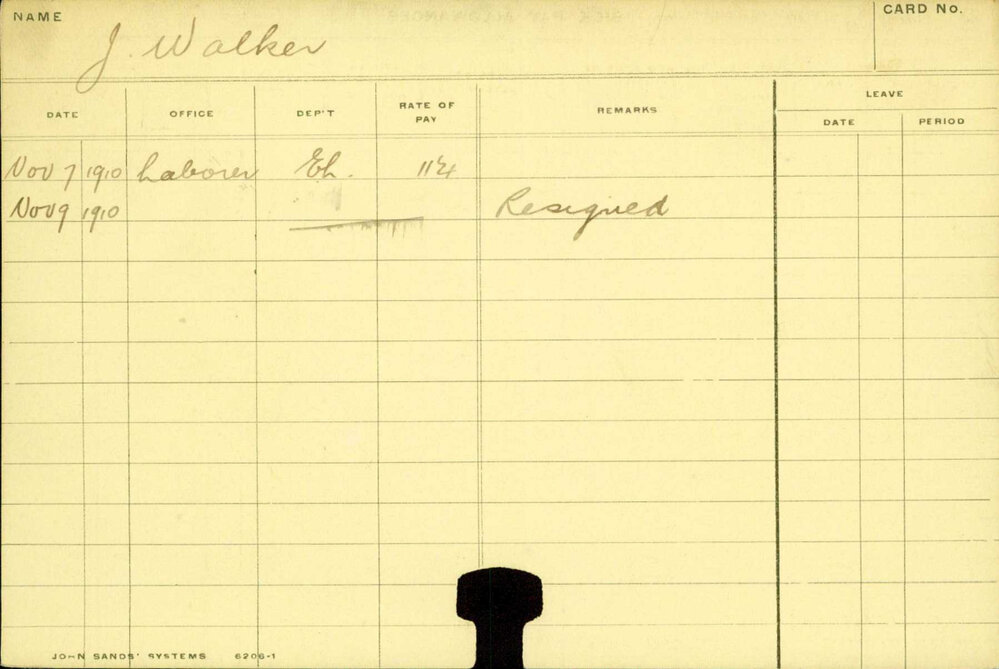 NAME J. Walker CARD No.
DATE OFFICE DEP'T RATE OF PAY REMARKS LEAVE
DATE PERIOD
Nov 7 1910 Laborer
Nov 9 1910 Resigned
JOHN SANDS' SYSTEMS 6206-1